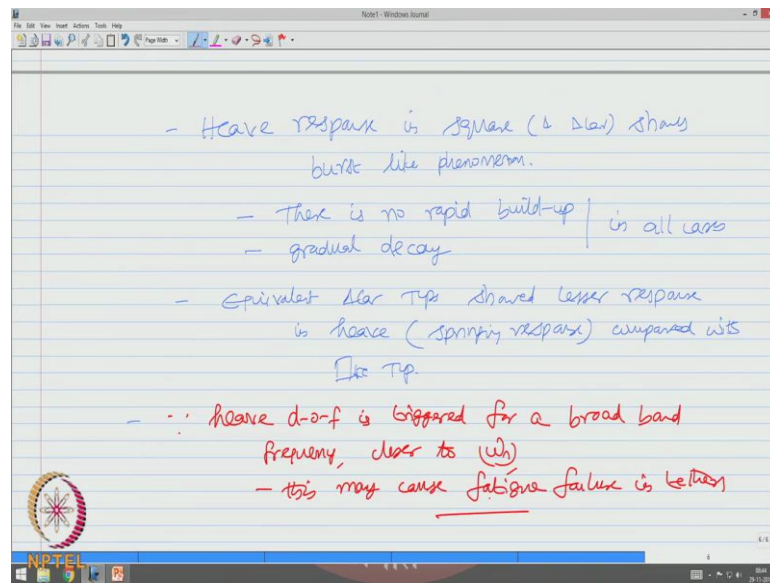 Note1 - Windows Journal
File Edit View Insert Actions Tools Help
Page Width
- Heave response in square (& Δlar) shows
burst like phenomenon.
- There is no rapid build-up
- gradual decay
in all cases
- Equivalent Δlar TLPs showed lesser response
in heave (springing response) compared with
□lar TLP.
- ∵ heave d-o-f is triggered for a broad band
frequency, closer to (ωn)
- this may cause fatigue failure in tethers
NPTEL
6/6
6